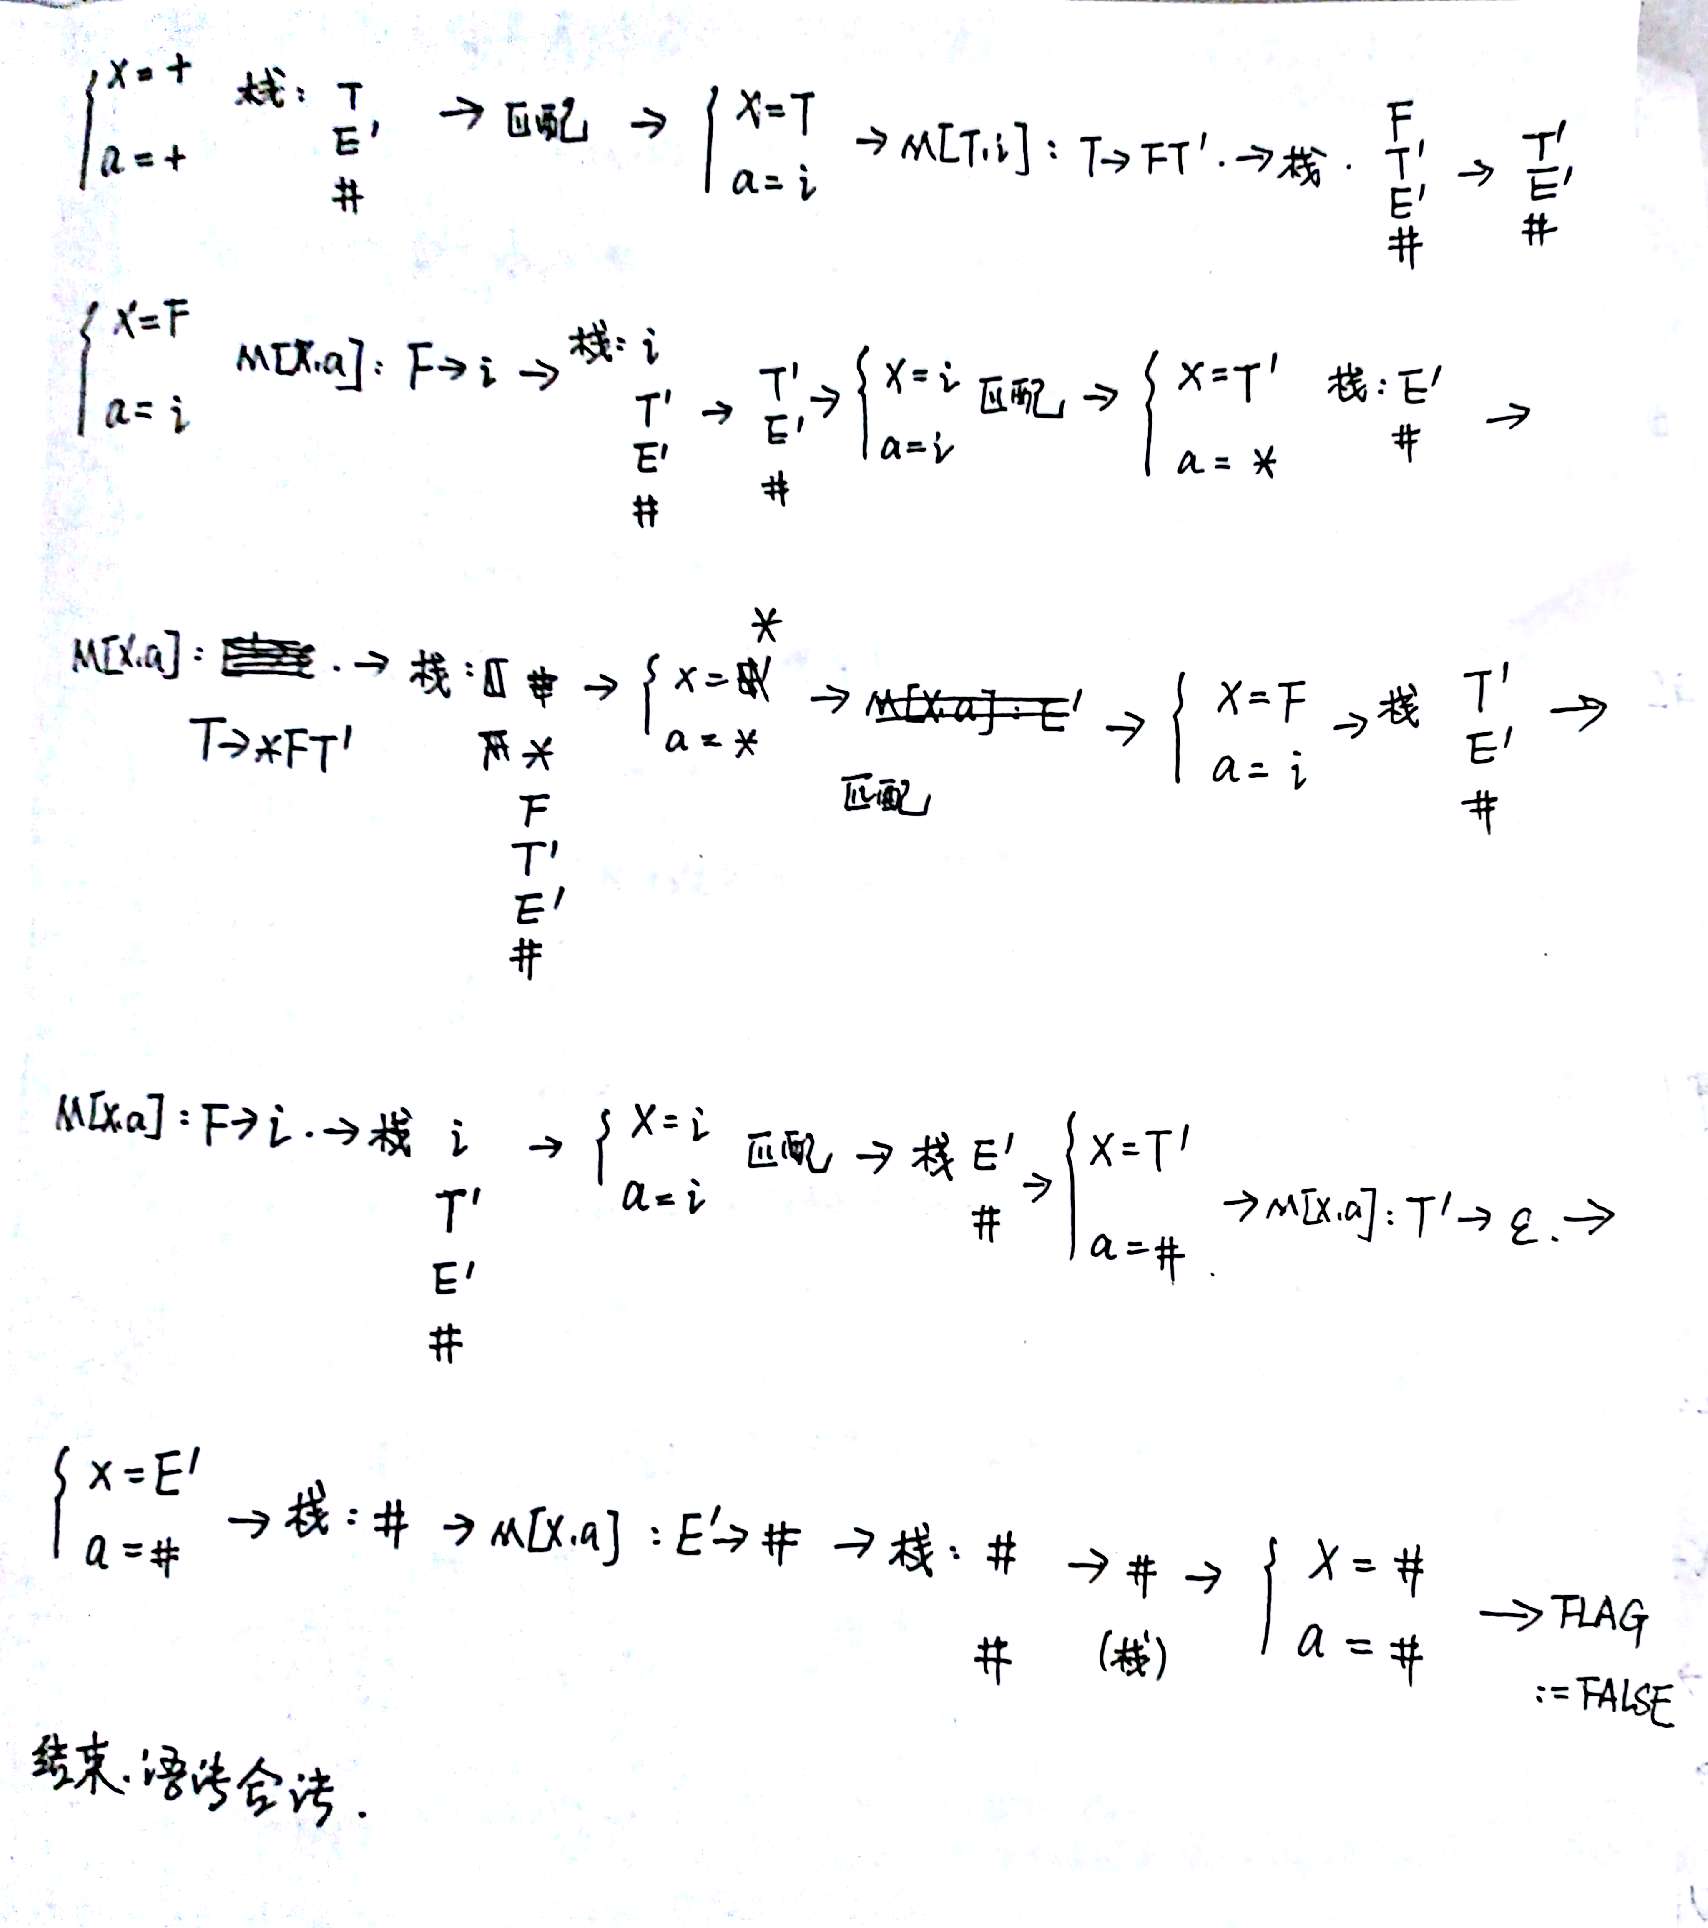 { X=+ a=+ 栈: T E' # → 匹配 → { X=T a=i → M[T,i]: T→FT'. → 栈. F T' E' # → T' E' #
{ X=F a=i M[X.a]: F→i → 栈: i T' E' # → T' E' # → { X=i a=i 匹配 → { X=T' a=* 栈: E' # →
M[X.a]: T→*FT' . → 栈: * F T' E' # → { X=* a=* → 匹配 → { X=F a=i → 栈 T' E' # →
M[X.a]: F→i. → 栈 i T' E' # → { X=i a=i 匹配 → 栈 E' # → { X=T' a=#. → M[X.a]: T'→ε. →
{ X=E' a=# → 栈: # → M[X.a]: E'→# → 栈: # # → # (栈) → { X=# a=# → FLAG := FALSE
结束.语法合法.